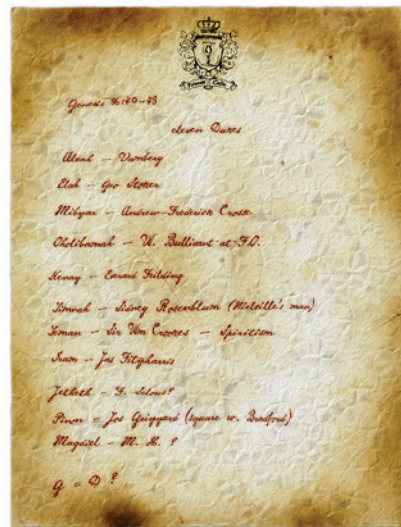 Genesis 36:40-43
eleven Dukes
Alvah - Vambery
Elah - Geo Stoker
Mibyar - Andrew-Frederick Crosse
Oholibamah - W. Bullivant-at-F.O.
Kenay - Everard Feilding
Timnah - Sidney Rosenblum (Melville's man)
Teman - Sir Wm Crookes - Spiritism
Iram - Jas Fitzharris
Jetheth - F. Selous?
Pinon = Jos (square w. Bradford)
Magdiel - M. H. ?
G = D ?